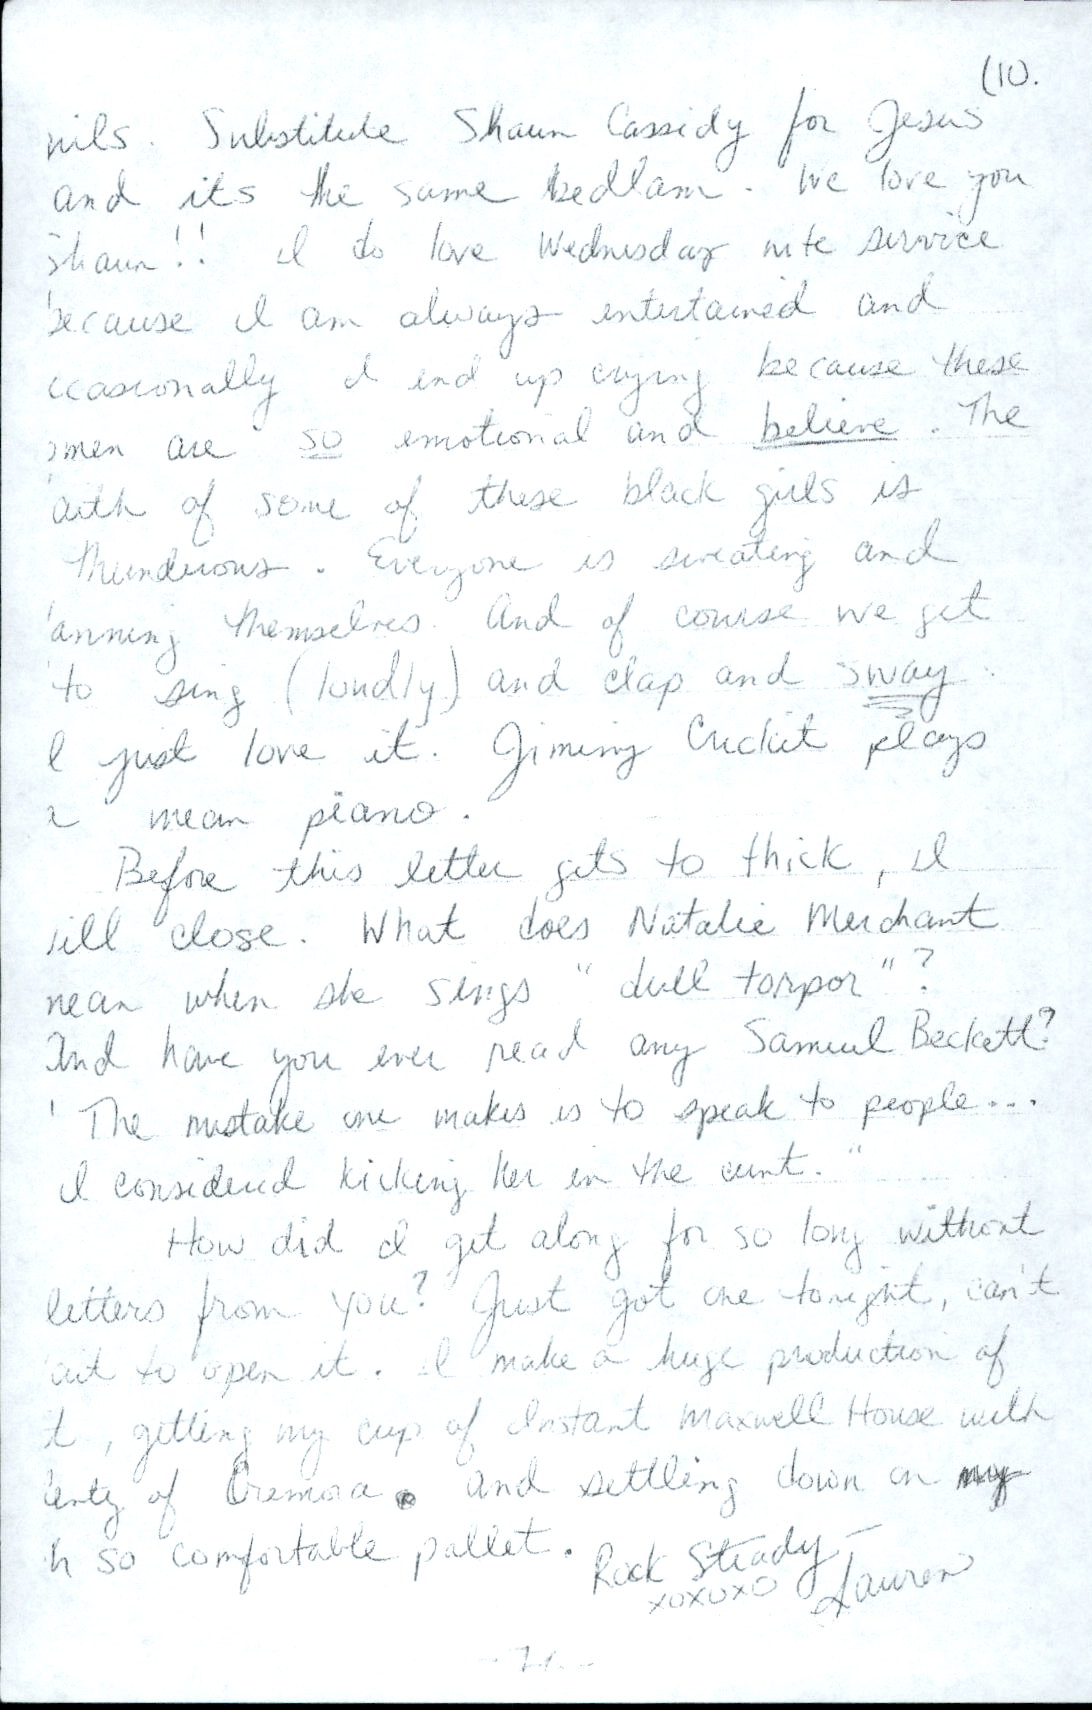 (10.
nils. Substitute Shaun Cassidy for Jesus
and its the same bedlam. We love you
Shaun!! I do love Wednesday nite service
because I am always entertained and
ccasionally I end up crying because these
omen are so emotional and believe. The
aith of some of these black girls is
thunderous. Everyone is sweating and
anning themselves. And of course we get
to sing (loudly) and clap and sway.
I just love it. Jiminy Cricket plays
a mean piano.
Before this letter gets to thick, I
ill close. What does Natalie Merchant
mean when she sings "dull torpor"?
And have you ever read any Samuel Beckett?
" The mistake one makes is to speak to people...
I considered kicking her in the cunt."
How did I get along for so long without
letters from you? Just got one tonight, can't
ait to open it. I make a huge production of
it, getting my cup of Instant Maxwell House with
lenty of Cremora. and settling down on my
h so comfortable pallet.
Rock Steady –
xoxoxo Lauren